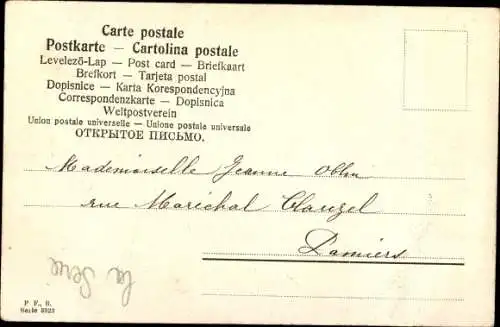 Carte postale
Postkarte — Cartolina postale
Levelező-Lap — Post card — Briefkaart
Brefkort — Tarjeta postal
Dopisnice — Karta Korespondencyjna
Correspondenzkarte — Dopisnica
Weltpostverein
Union postale universelle — Unione postale universale
ОТКРЫТОЕ ПИСЬМО.
Mademoiselle Jeanne Oblin
rue Maréchal Clauzel
Pamiers
la Sere
P F., B.
Serie 8323